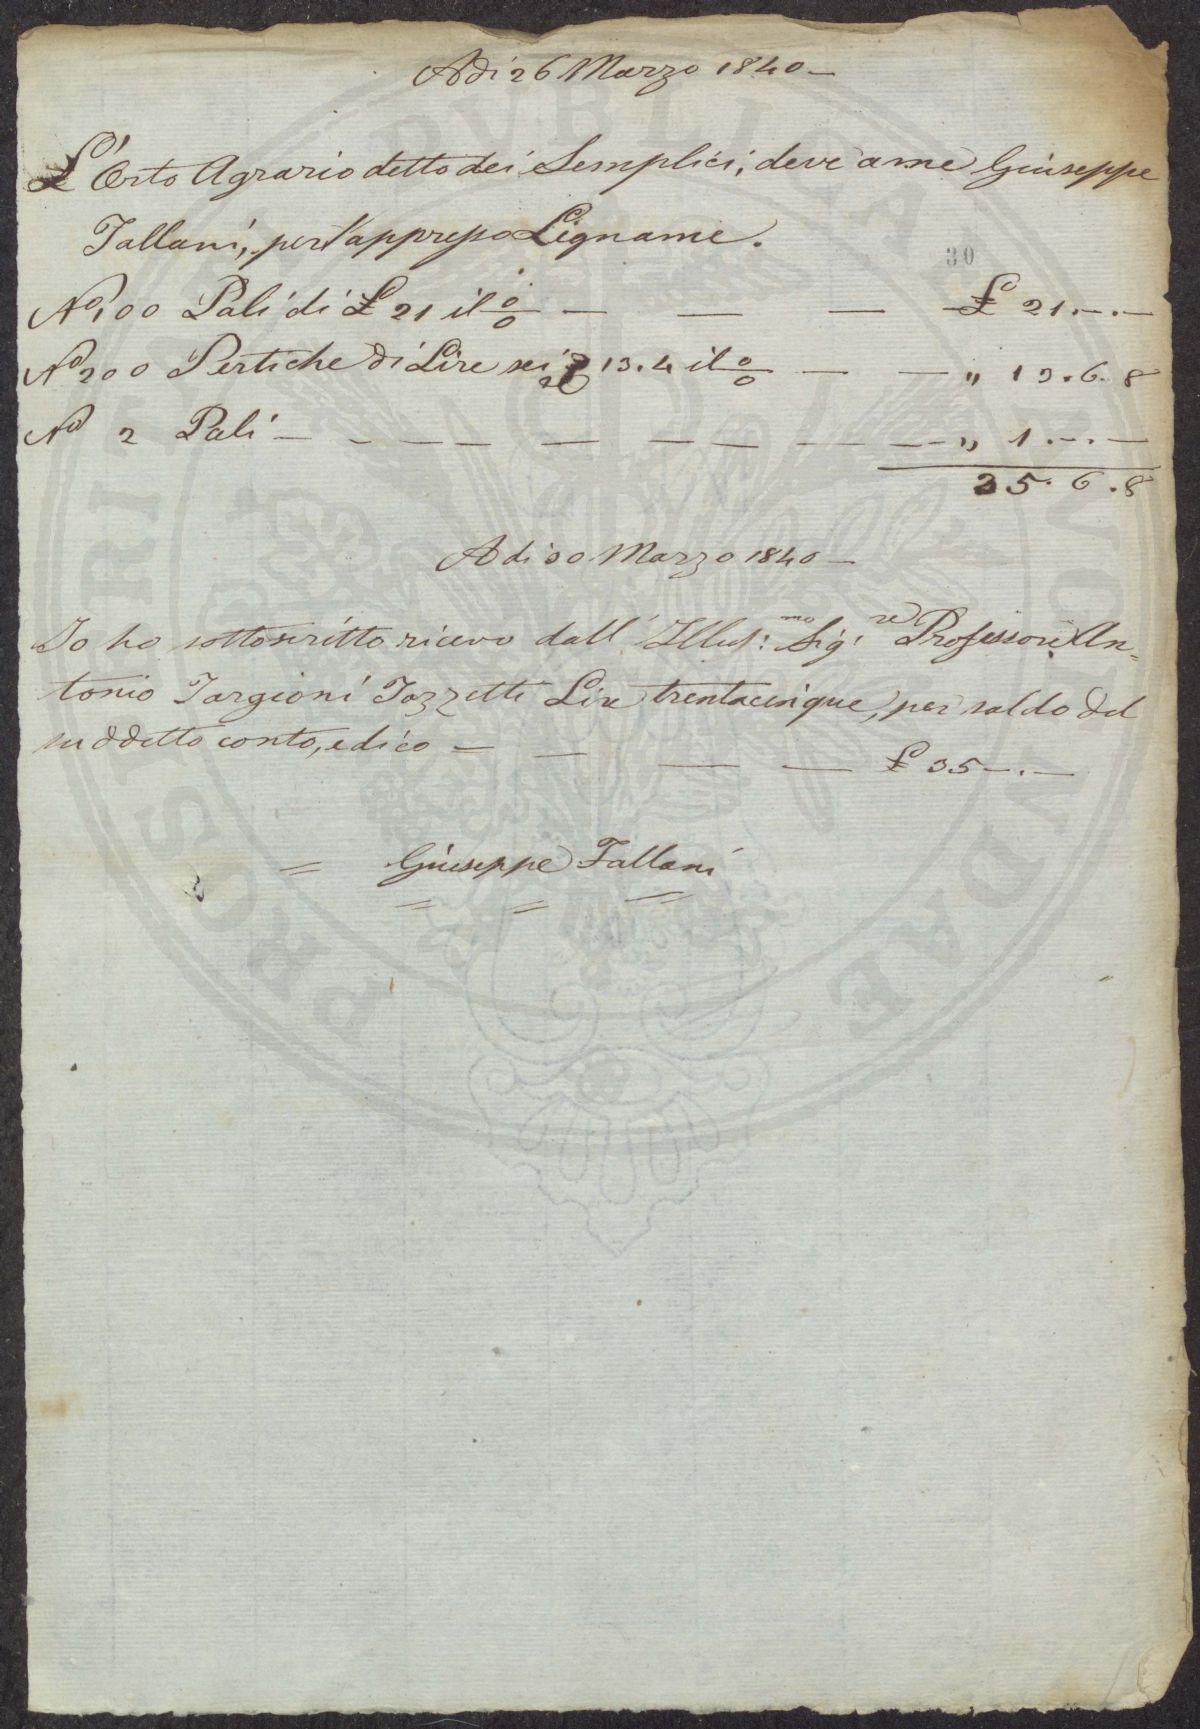 Adi 26 Marzo 1840 —
L'Orto Agrario detto dei Semplici, deve a me Giuseppe
Fallani, per l'appresso Legname.
30
N° 100 Pali di £ 21 il % — — — £ 21 . — . —
N° 200 Pertiche di Lire sei 13.4 il % — — " 13 . 6 . 8
N° 2 Pali — — — — — — — — " 1 . — . —
35 . 6 . 8
Adi 30 Marzo 1840 —
Io ho sottoscritto ricevo dall' Illus:mo Sig:re Professore An=
tonio Targioni Tozzetti Lire trentacinque, per saldo del
suddetto conto, e dico — — — — £ 35 — . —
= Giuseppe Fallani
PROSPERITATI PUBLICAE